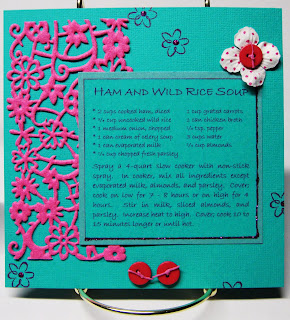 HAM AND WILD RICE SOUP
* 2 cups cooked ham, diced
* 3/4 cup uncooked wild rice
* 1 medium onion, chopped
* 1 can cream of celery soup
* 1 can evaporated milk
* 1/4 cup chopped fresh parsley
1 cup grated carrots
1 can chicken broth
1/4 tsp. pepper
3 cups water
1/2 cup almonds
Spray a 4-quart slow cooker with non-stick
spray. In cooker, mix all ingredients except
evaporated milk, almonds, and parsley. Cover;
cook on low for 7 - 8 hours or on high for 4
hours. Stir in milk, sliced almonds, and
parsley. Increase heat to high. Cover; cook 10 to
15 minutes longer or until hot.